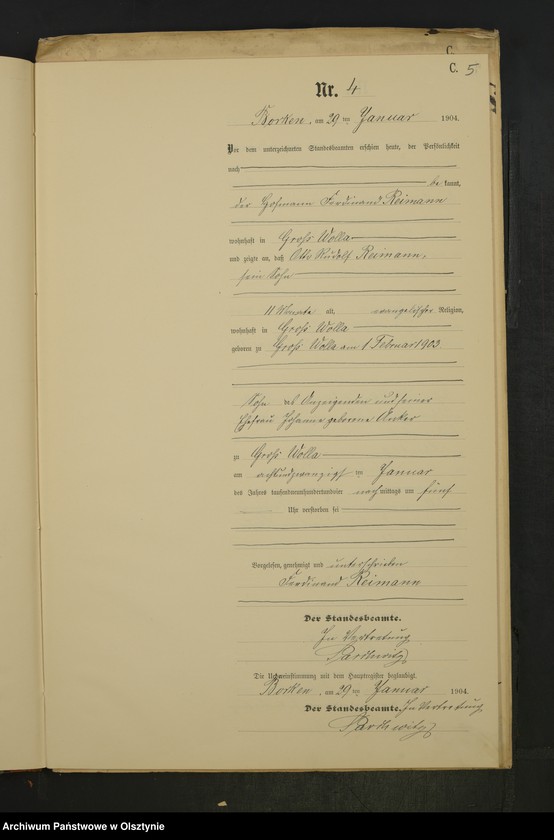 C.
C. 5
Nr. 4
Borken, am 29 ten Januar 1904.
Vor dem unterzeichneten Standesbeamten erschien heute, der Persönlichkeit
nach
be kannt,
der Hofmann Ferdinand Reimann
wohnhaft in Groß Wolla
und zeigte an, daß Otto Rudolf Reimann,
sein Sohn
11 Monate alt, evangelischer Religion,
wohnhaft in Groß Wolla
geboren zu Groß Wolla am 1 Februar 1903
Sohn des Anzeigenden und seiner
Ehefrau Johanne geborene Anker
zu Groß Wolla
am achtundzwanzigst ten Januar
des Jahres tausendneunhundertundvier nach mittags um fünf
Uhr verstorben sei
Vorgelesen, genehmigt und unterschrieben
Ferdinand Reimann
Der Standesbeamte.
In Vertretung
Die Uebereinstimmung mit dem Hauptregister beglaubigt.
Borken, am 29 ten Januar 1904.
Der Standesbeamte. In Vertretung
Archiwum Państwowe w Olsztynie